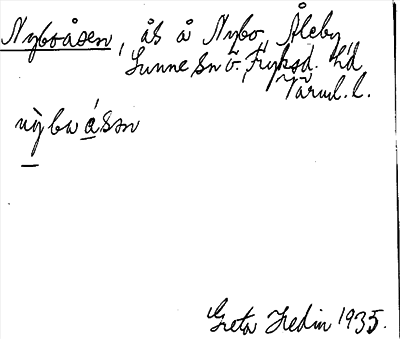 Nyboåsen, ås å Nybo, Åleby,
Sunne sn Ö. Fryksd. hd
Värml. l.
nỳbwásn
Greta Hedin 1935.